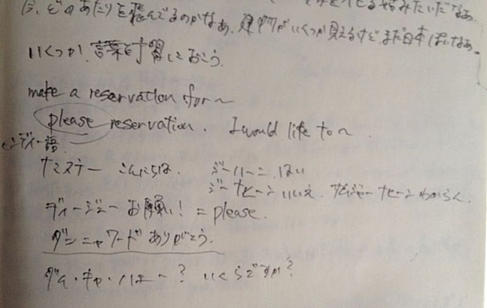 は、どのあたりを飛んでるのかなあ、建物がいくつか見えるけど、まだ日本ぽいなあ。
いくつか、言葉を予習しておこう。
make a reservation for〜
please reservation. I would like to〜
ヒンディー語
ナマステー こんにちは、 ジーハーン はい
ジー ナヒーン いいえ、 ナヒーン わからん
ディージエー お願い! = please.
ダンニャワード ありがとう。
キャ・ハェー? いくらですか?